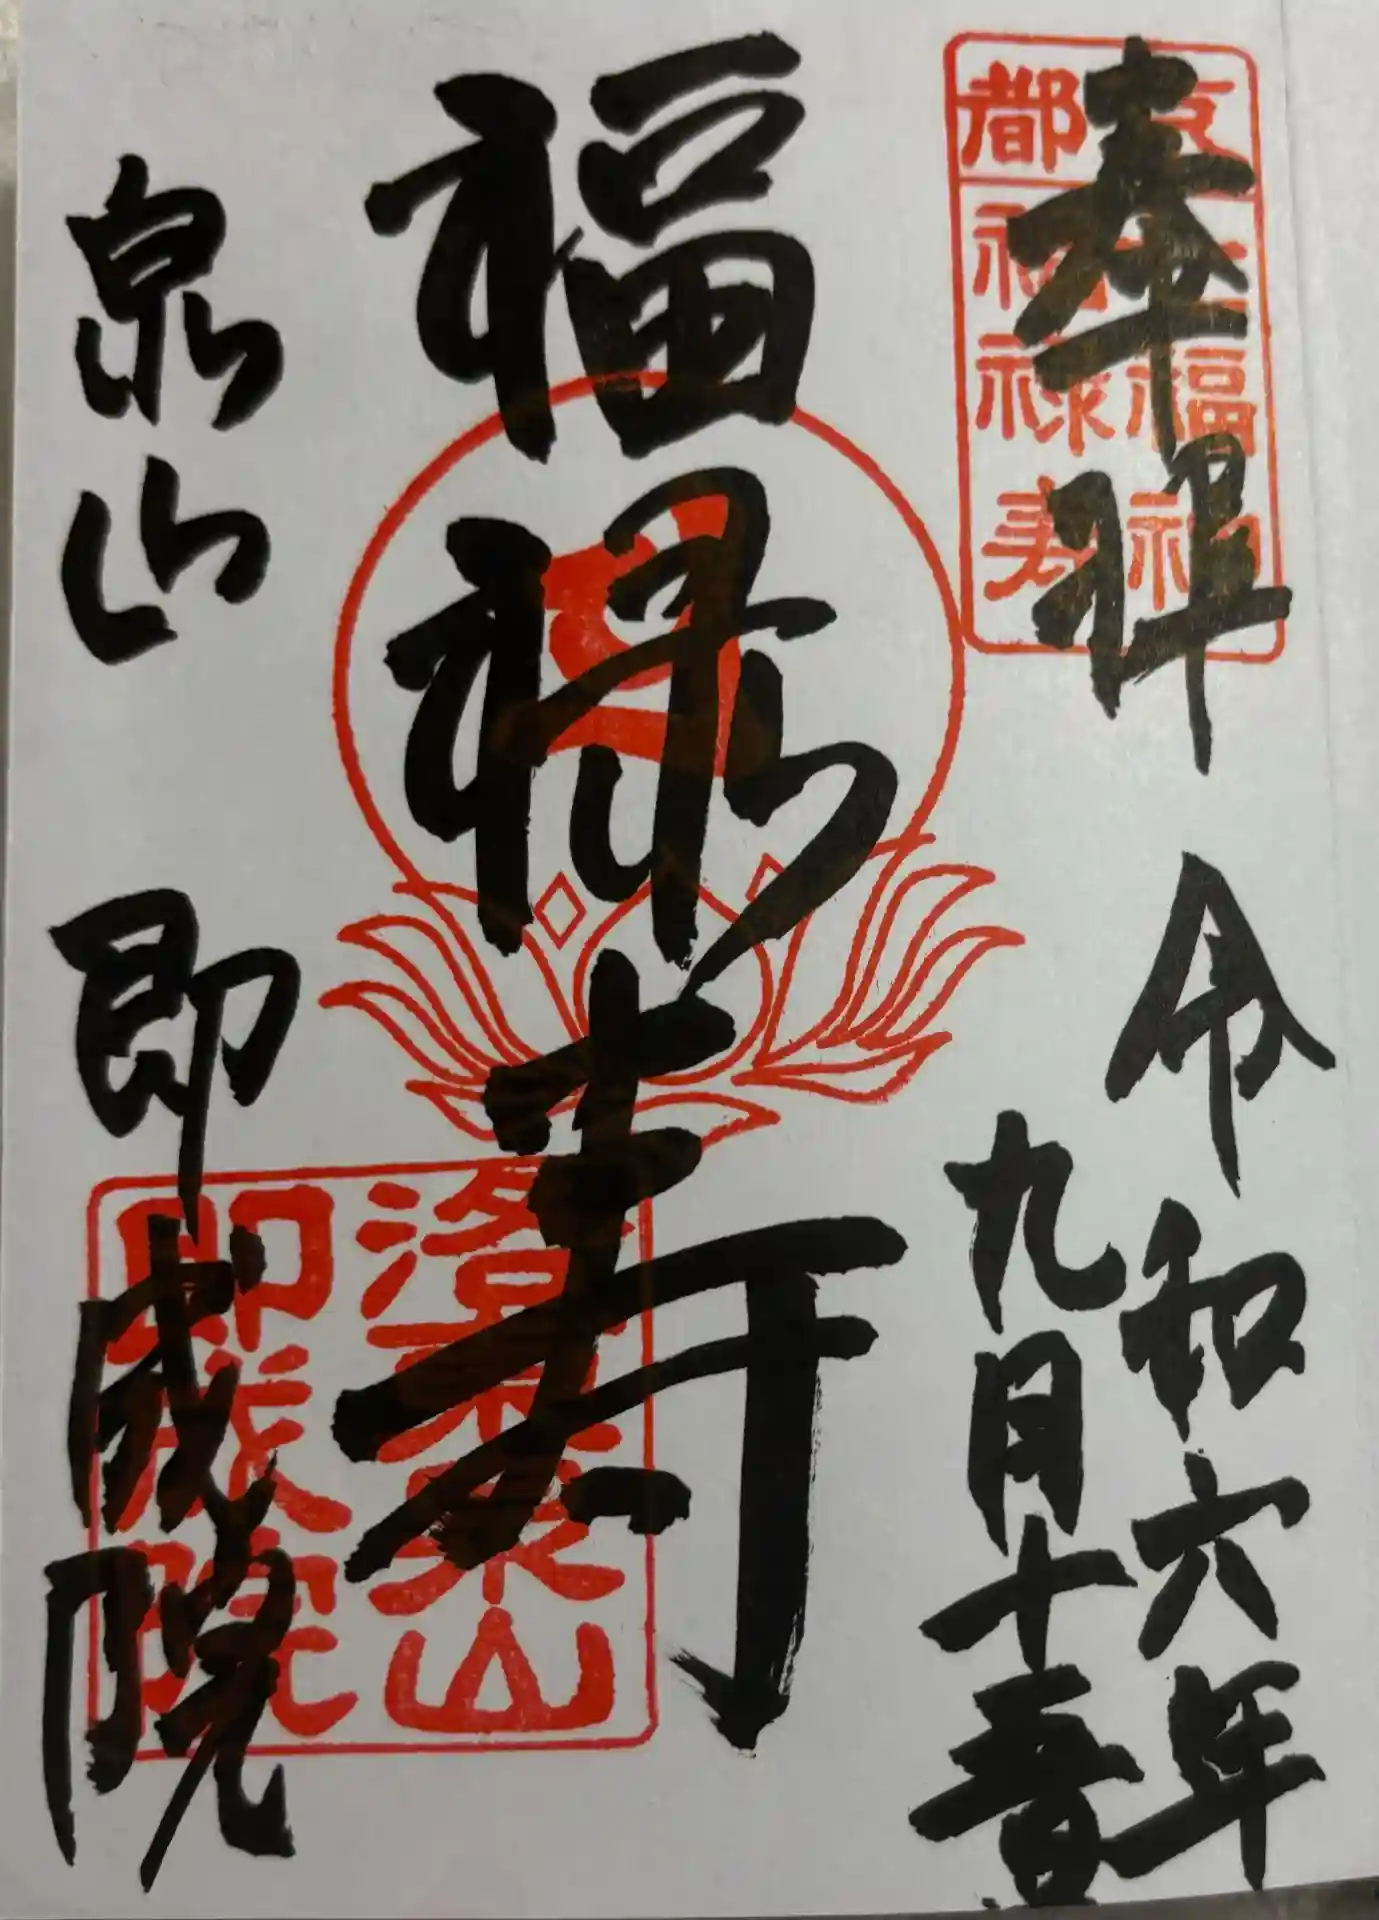 奉拝
令和六年
九月十五日
福禄寿
泉山 即成院
京都
七福神
福禄寿
山
即成院